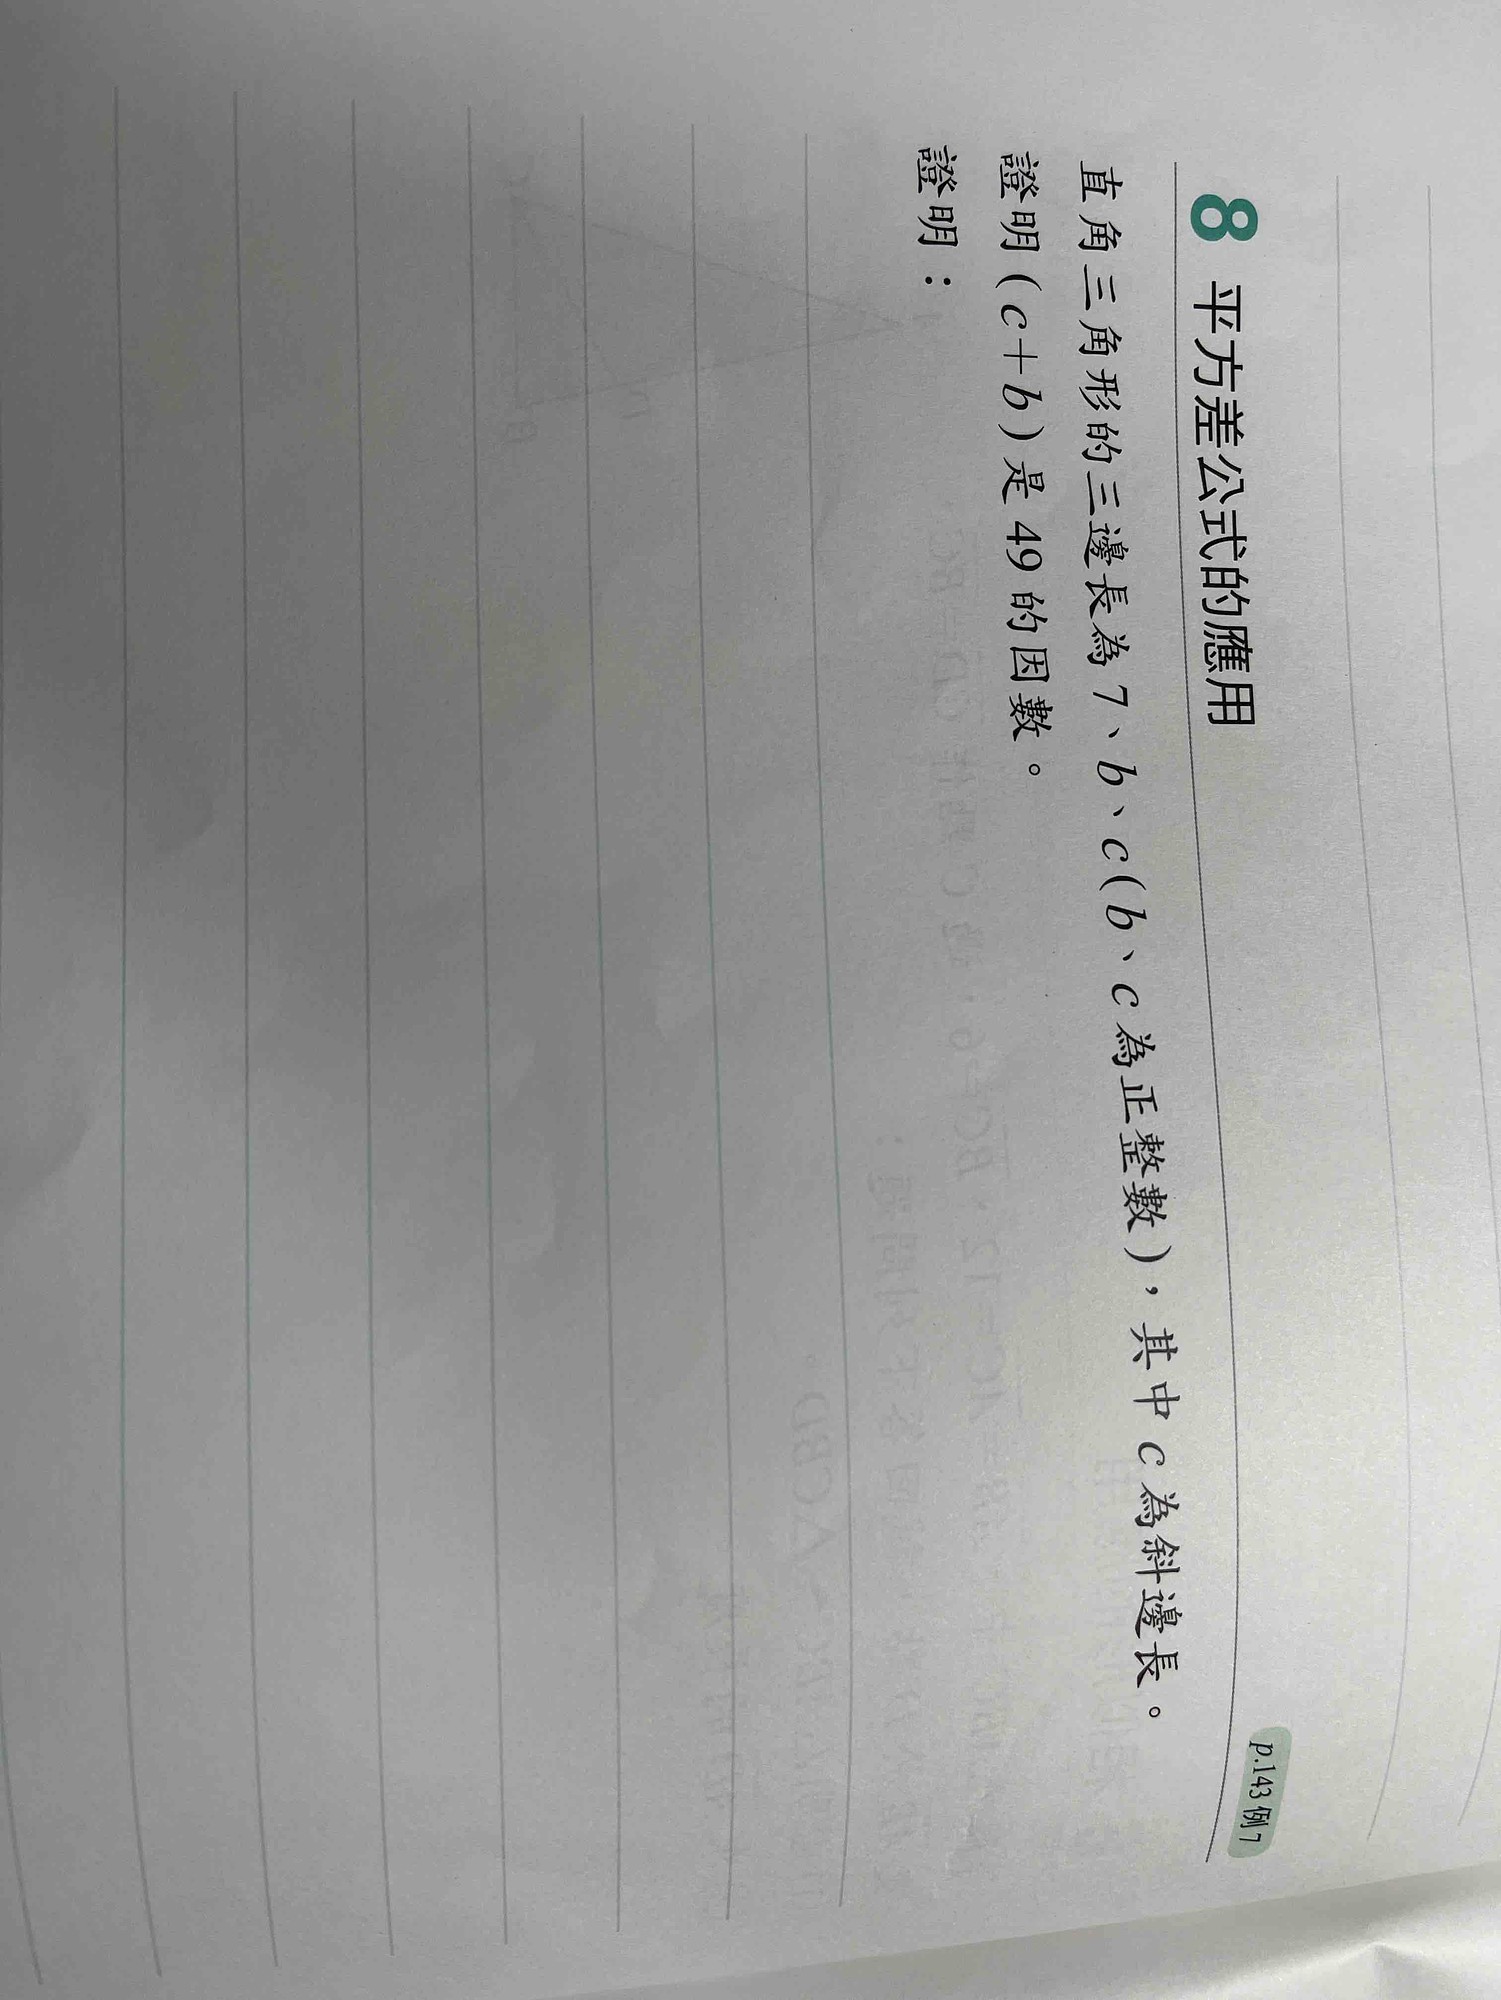 8 平方差公式的應用
p.143 例 7
直角三角形的三邊長為 7、b、c(b、c 為正整數)，其中 c 為斜邊長。
證明(c＋b)是 49 的因數。
證明：